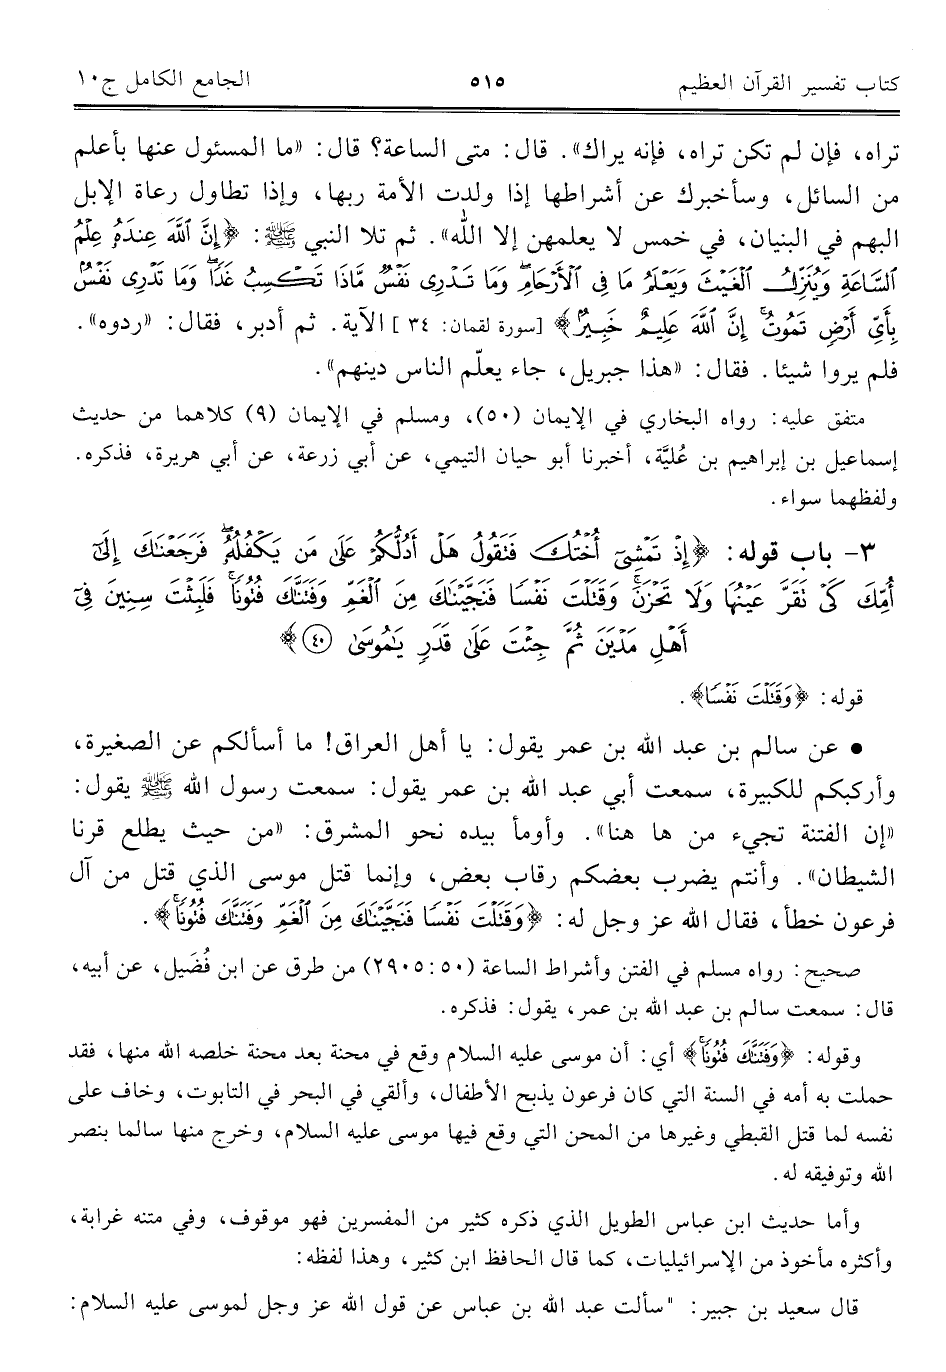 كتاب تفسير القرآن العظيم ٥١٥ الجامع الكامل ج١٠
تراه، فإن لم تكن تراه، فإنه يراك». قال: متى الساعة؟ قال: «ما المسئول عنها بأعلم
من السائل، وسأخبرك عن أشراطها إذا ولدت الأمة ربها، وإذا تطاول رعاة الإبل
البهم في البنيان، في خمس لا يعلمهن إلا الله». ثم تلا النبي ﷺ: ﴿إِنَّ ٱللَّهَ عِندَهُۥ عِلْمُ
ٱلسَّاعَةِ وَيُنَزِّلُ ٱلْغَيْثَ وَيَعْلَمُ مَا فِى ٱلْأَرْحَامِۖ وَمَا تَدْرِى نَفْسٌ مَّاذَا تَكْسِبُ غَدًاۖ وَمَا تَدْرِى نَفْسٌۢ
بِأَىِّ أَرْضٍ تَمُوتُۚ إِنَّ ٱللَّهَ عَلِيمٌ خَبِيرٌۢ﴾ [سورة لقمان: ٣٤] الآية. ثم أدبر، فقال: «ردوه».
فلم يروا شيئا. فقال: «هذا جبريل، جاء يعلّم الناس دينهم».
متفق عليه: رواه البخاري في الإيمان (٥٠)، ومسلم في الإيمان (٩) كلاهما من حديث
إسماعيل بن إبراهيم بن عُليَّة، أخبرنا أبو حيان التيمي، عن أبي زرعة، عن أبي هريرة، فذكره.
ولفظهما سواء.
٣- باب قوله: ﴿إِذْ تَمْشِىٓ أُخْتُكَ فَتَقُولُ هَلْ أَدُلُّكُمْ عَلَىٰ مَن يَكْفُلُهُۥۖ فَرَجَعْنَٰكَ إِلَىٰٓ
أُمِّكَ كَىْ تَقَرَّ عَيْنُهَا وَلَا تَحْزَنَۚ وَقَتَلْتَ نَفْسًا فَنَجَّيْنَٰكَ مِنَ ٱلْغَمِّ وَفَتَنَّٰكَ فُتُونًاۚ فَلَبِثْتَ سِنِينَ فِىٓ
أَهْلِ مَدْيَنَ ثُمَّ جِئْتَ عَلَىٰ قَدَرٍ يَٰمُوسَىٰ ٤٠﴾
قوله: ﴿وَقَتَلْتَ نَفْسًا﴾.
• عن سالم بن عبد الله بن عمر يقول: يا أهل العراق! ما أسألكم عن الصغيرة،
وأركبكم للكبيرة، سمعت أبي عبد الله بن عمر يقول: سمعت رسول الله ﷺ يقول:
«إن الفتنة تجيء من ها هنا». وأومأ بيده نحو المشرق: «من حيث يطلع قرنا
الشيطان». وأنتم يضرب بعضكم رقاب بعض، وإنما قتل موسى الذي قتل من آل
فرعون خطأ، فقال الله عز وجل له: ﴿وَقَتَلْتَ نَفْسًا فَنَجَّيْنَٰكَ مِنَ ٱلْغَمِّ وَفَتَنَّٰكَ فُتُونًاۚ﴾.
صحيح: رواه مسلم في الفتن وأشراط الساعة (٥٠:٢٩٠٥) من طرق عن ابن فُضَيل، عن أبيه،
قال: سمعت سالم بن عبد الله بن عمر، يقول: فذكره.
وقوله: ﴿وَفَتَنَّٰكَ فُتُونًاۚ﴾ أي: أن موسى عليه السلام وقع في محنة بعد محنة خلصه الله منها، فقد
حملت به أمه في السنة التي كان فرعون يذبح الأطفال، وألقي في البحر في التابوت، وخاف على
نفسه لما قتل القبطي وغيرها من المحن التي وقع فيها موسى عليه السلام، وخرج منها سالما بنصر
الله وتوفيقه له.
وأما حديث ابن عباس الطويل الذي ذكره كثير من المفسرين فهو موقوف، وفي متنه غرابة،
وأكثره مأخوذ من الإسرائيليات، كما قال الحافظ ابن كثير، وهذا لفظه:
قال سعيد بن جبير: "سألت عبد الله بن عباس عن قول الله عز وجل لموسى عليه السلام: